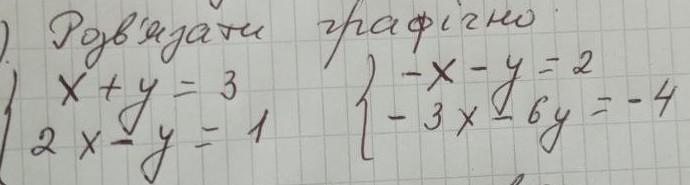 ). Розв'язати графічно.
{ x + y = 3 { -x - y = 2
2x - y = 1 - 3x - 6y = -4